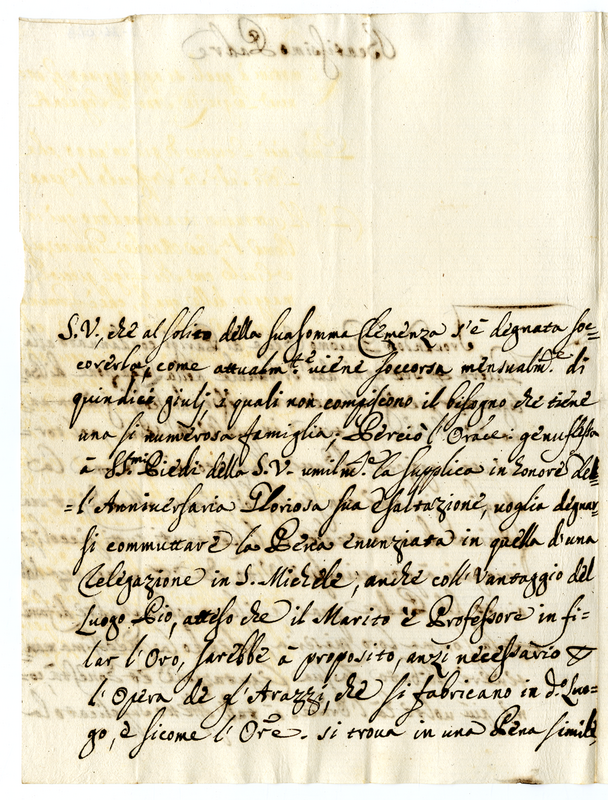 S. V., che al solito della sua somma Clemenza s'è degnata soc=
correrla, come attualm.te viene soccorsa mensualm.e di
quindici giulj, i quali non compiscono il bisogno che tiene
una si numerosa famiglia; Perciò l'Orãce: genuflessa
à SS.mi Piedi della S. V. umilm.e la supplica in honore del=
=l'Anniversaria Gloriosa sua esaltazione, voglia degnar
si commuttare la Pena enunziata in quella d'una
Relegazione in S. Michele, anche coll'Vantaggio del
Luogo Pio, atteso che il Marito è Professore in fi=
lar l'Oro, sarebbe à proposito, anzi necessario
l'Opera de gl'Arazzi, che si fabricano in d.o Luo=
go, e sicome l'Or.e si trova in una Pena simile,